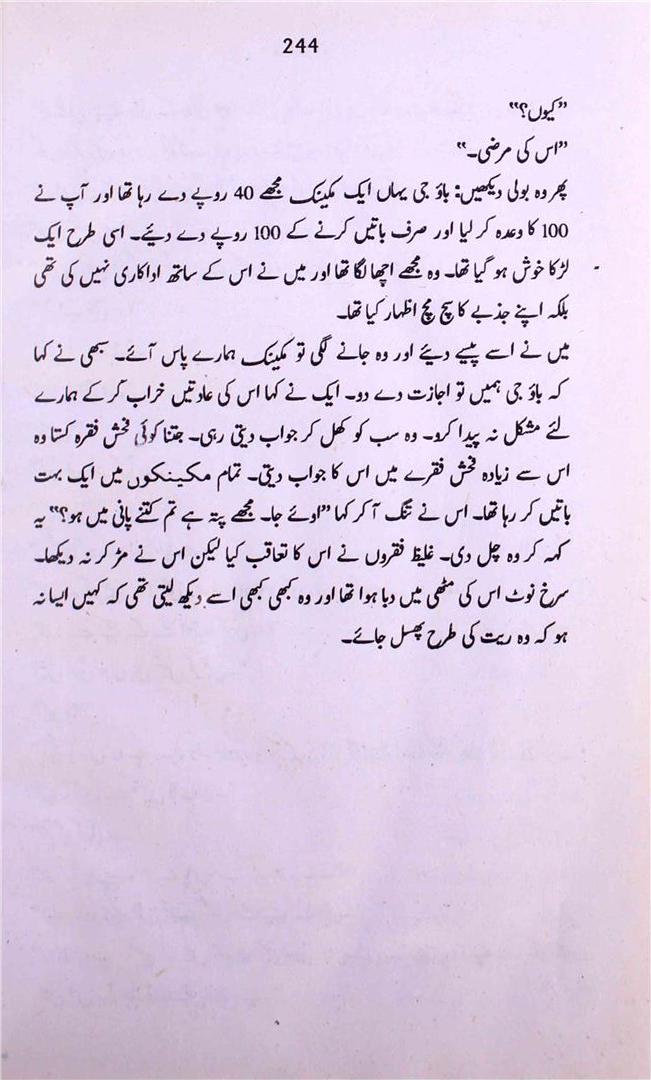 244
”کیوں؟“
”اس کی مرضی۔“
پھر وہ بولی دیکھیں: باؤ جی یہاں ایک مکینک مجھے 40 روپے دے رہا تھا اور آپ نے
100 کا وعدہ کر لیا اور صرف باتیں کرنے کے 100 روپے دے دیئے۔ اسی طرح ایک
لڑکا خوش ہو گیا تھا۔ وہ مجھے اچھا لگا تھا اور میں نے اس کے ساتھ اداکاری نہیں کی تھی
بلکہ اپنے جذبے کا سچ مچ اظہار کیا تھا۔
میں نے اسے پیسے دیئے اور وہ جانے لگی تو مکینک ہمارے پاس آئے۔ سبھی نے کہا
کہ باؤ جی ہمیں تو اجازت دے دو۔ ایک نے کہا اس کی عادتیں خراب کر کے ہمارے
لئے مشکل نہ پیدا کرو۔ وہ سب کو کھل کر جواب دیتی رہی۔ جتنا کوئی فحش فقرہ کستا وہ
اس سے زیادہ فحش فقرے میں اس کا جواب دیتی۔ تمام مکینکوں میں ایک بہت
باتیں کر رہا تھا۔ اس نے تنگ آ کر کہا ”اوئے جا۔ مجھے پتہ ہے تم کتنے پانی میں ہو؟“ یہ
کہہ کر وہ چل دی۔ غلیظ فقروں نے اس کا تعاقب کیا لیکن اس نے مڑ کر نہ دیکھا۔
سرخ نوٹ اس کی مٹھی میں دبا ہوا تھا اور وہ کبھی کبھی اسے دیکھ لیتی تھی کہ کہیں ایسا نہ
ہو کہ وہ ریت کی طرح پھسل جائے۔